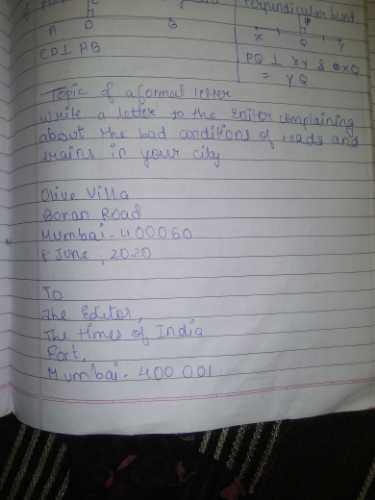 Perpendicular bisect
C
P
A O B
X Q Y
CD ⊥ AB
PQ ⊥ XY & QXQ
= YQ
Topic of a formal letter
Write a letter to the Eniter complaining
about the bad conditions of roads and
drains in your city
Olive Villa
Boran Road
Mumbai - 400050
8 June, 2020
To
The Editor,
The times of India
Fort,
Mumbai - 400 001